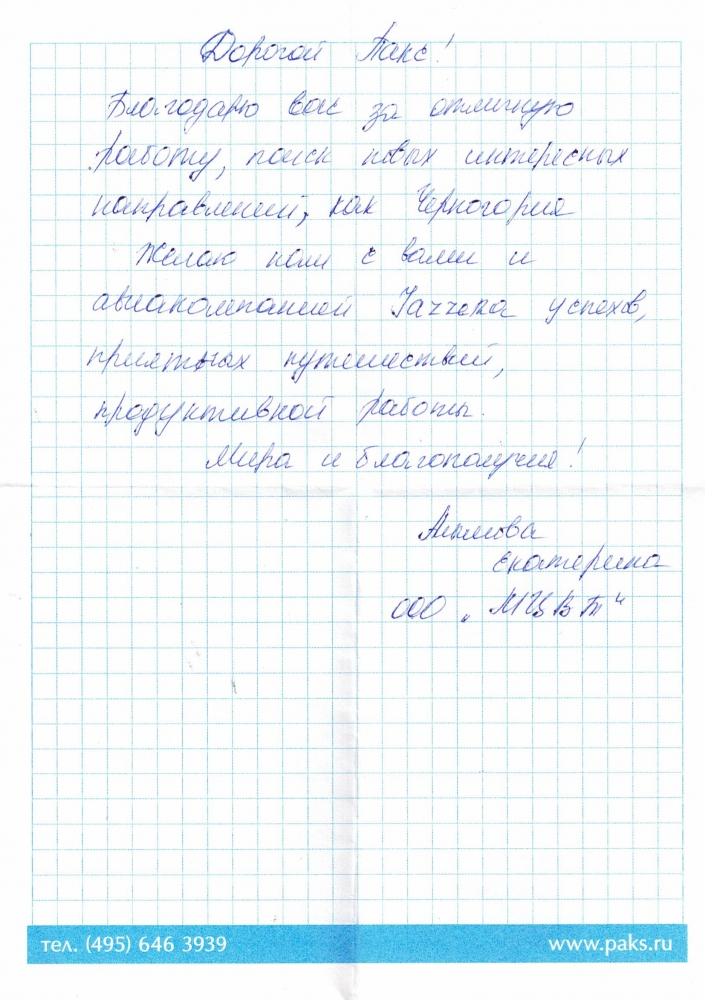 Дорогой Пакс!
Благодарю вас за отличную
работу, поиск новых интересных
направлений, как Черногория
Желаю нам с вами и
авиакомпанией успехов,
приятных путешествий,
продуктивной работы.
Мира и благополучия!
Екатерина
ООО "МЦВТ"
тел. (495) 646 3939
www.paks.ru